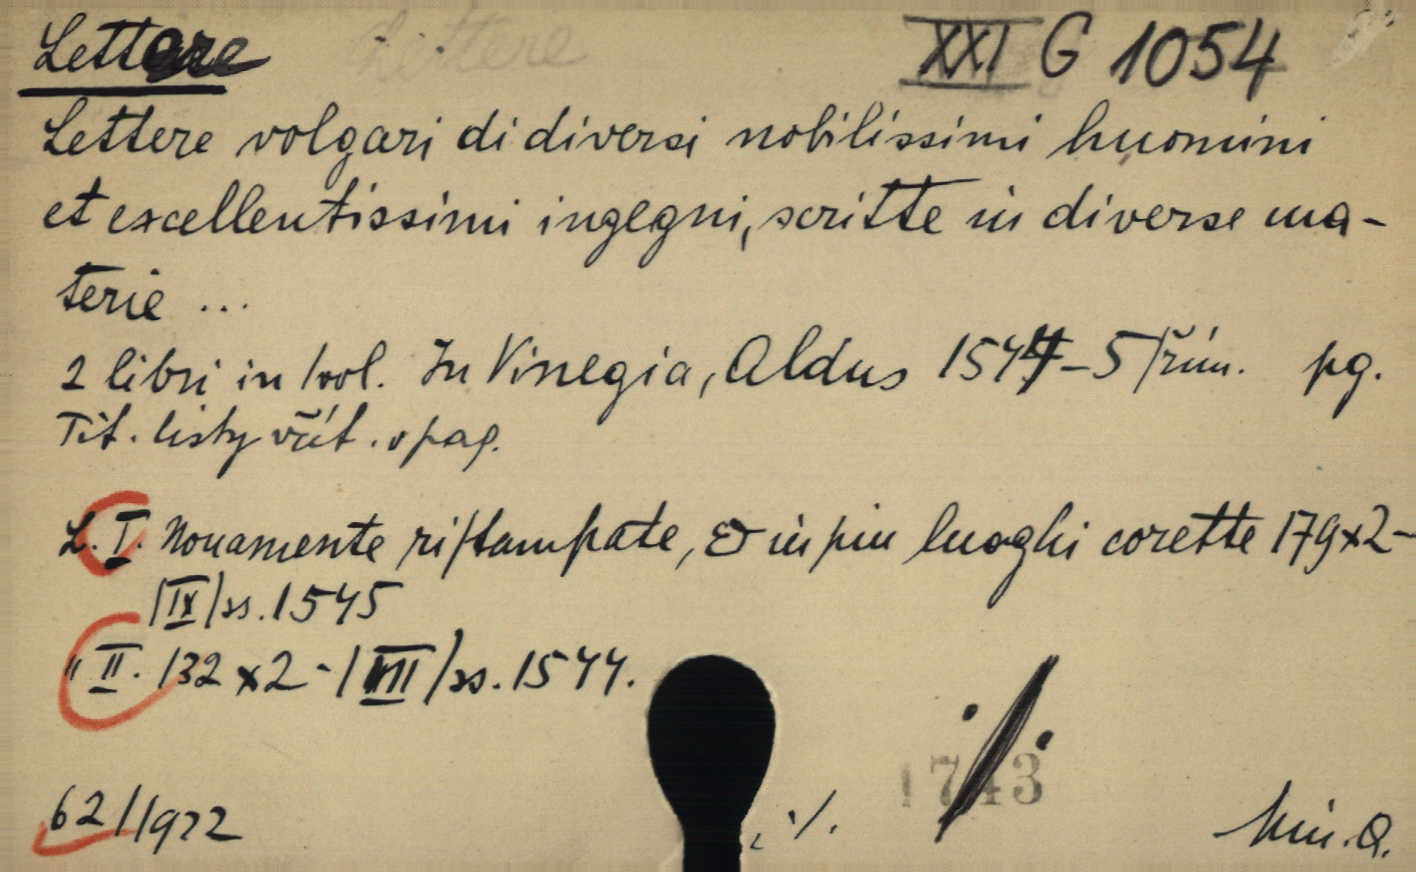 Lettere Lettere XXI G 1054
Lettere volgari di diversi nobilissimi huomini
et excellentissimi ingegni, scritte in diverse ma-
terie ...
2 libri in 1 vol. In Vinegia, Aldus 1544-5 /řím. pg.
Tit. listy včít. v pag.
L. I. Nouamente riſtampate, & in piu luoghi corette 179x2-
/IX/ ss. 1545
" II. 132 x 2 - /VIII/ ss. 1544.
62/1922 ./. 1743 Min. Q.